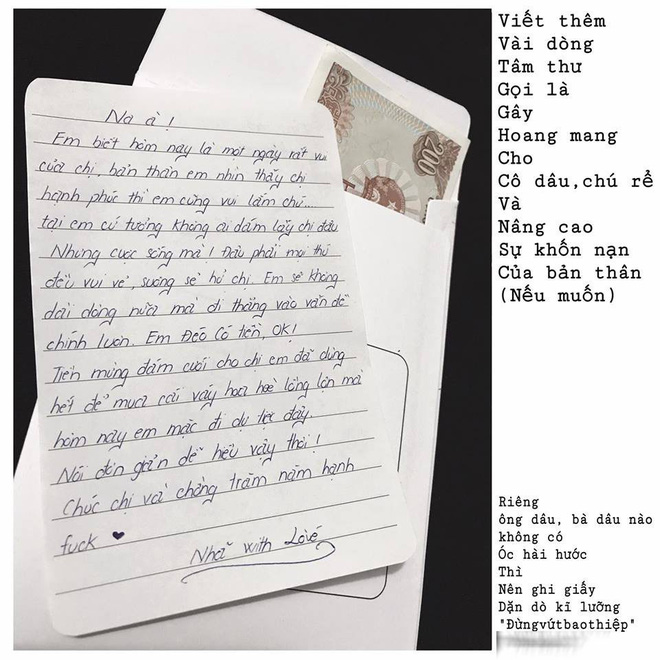 Na à!
Em biết hôm nay là một ngày rất vui
của chị, bản thân em nhìn thấy chị
hạnh phúc thì em cũng vui lắm chứ...
tại em cứ tưởng không ai dám lấy chị đâu
Nhưng cuộc sống mà! Đâu phải mọi thứ
đều vui vẻ, sướng sẽ hở chị. Em sẽ không
dài dòng nữa mà đi thẳng vào vấn đề
chính luôn. Em Đéo Có tiền, OK!
Tiền mừng đám cưới cho chị em đã dùng
hết để mua cái váy hoa hoè lồng lộn mà
hôm nay em mặc đi dự tiệc đây.
Nói đơn giản dễ hiểu vậy thôi!
Chúc chị và chồng trăm năm hạnh
fuck ♥
Nhã with Love
200
Viết thêm
Vài dòng
Tâm thư
Gọi là
Gây
Hoang mang
Cho
Cô dâu,chú rể
Và
Nâng cao
Sự khốn nạn
Của bản thân
(Nếu muốn)
Riêng
ông dâu, bà dâu nào
không có
Óc hài hước
Thì
Nên ghi giấy
Dặn dò kĩ lưỡng
"Đừngvứtbaothiệp"